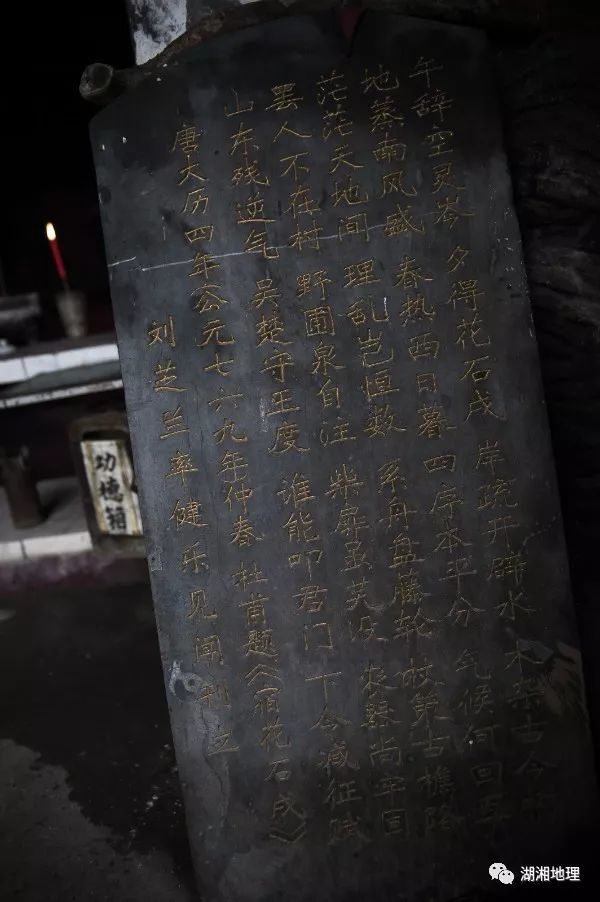 午辞空灵岑 夕得花石戌 岸疏开辟水 木杂古今树
地蒸南风盛 春热西日暮 四序本平分 气候何回互
茫茫天地间 理乱岂恒数 系舟盘藤轮 杖策古樵路
罢人不在村 野圃泉自注 柴扉虽芜没 农器尚牢固
山东残逆气 吴楚守王度 谁能叩君门 下令减征赋
唐大历四年公元七六九年仲春 杜甫题《宿花石戌》
刘芝兰率健乐见闻刊之
功德箱
湖湘地理